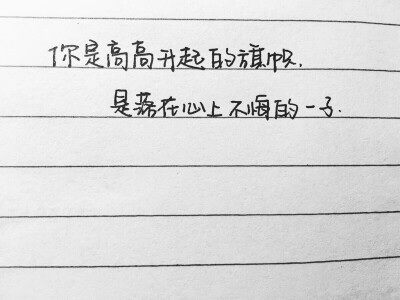 你是高高升起的旗帜.
是落在心上不悔的一子.